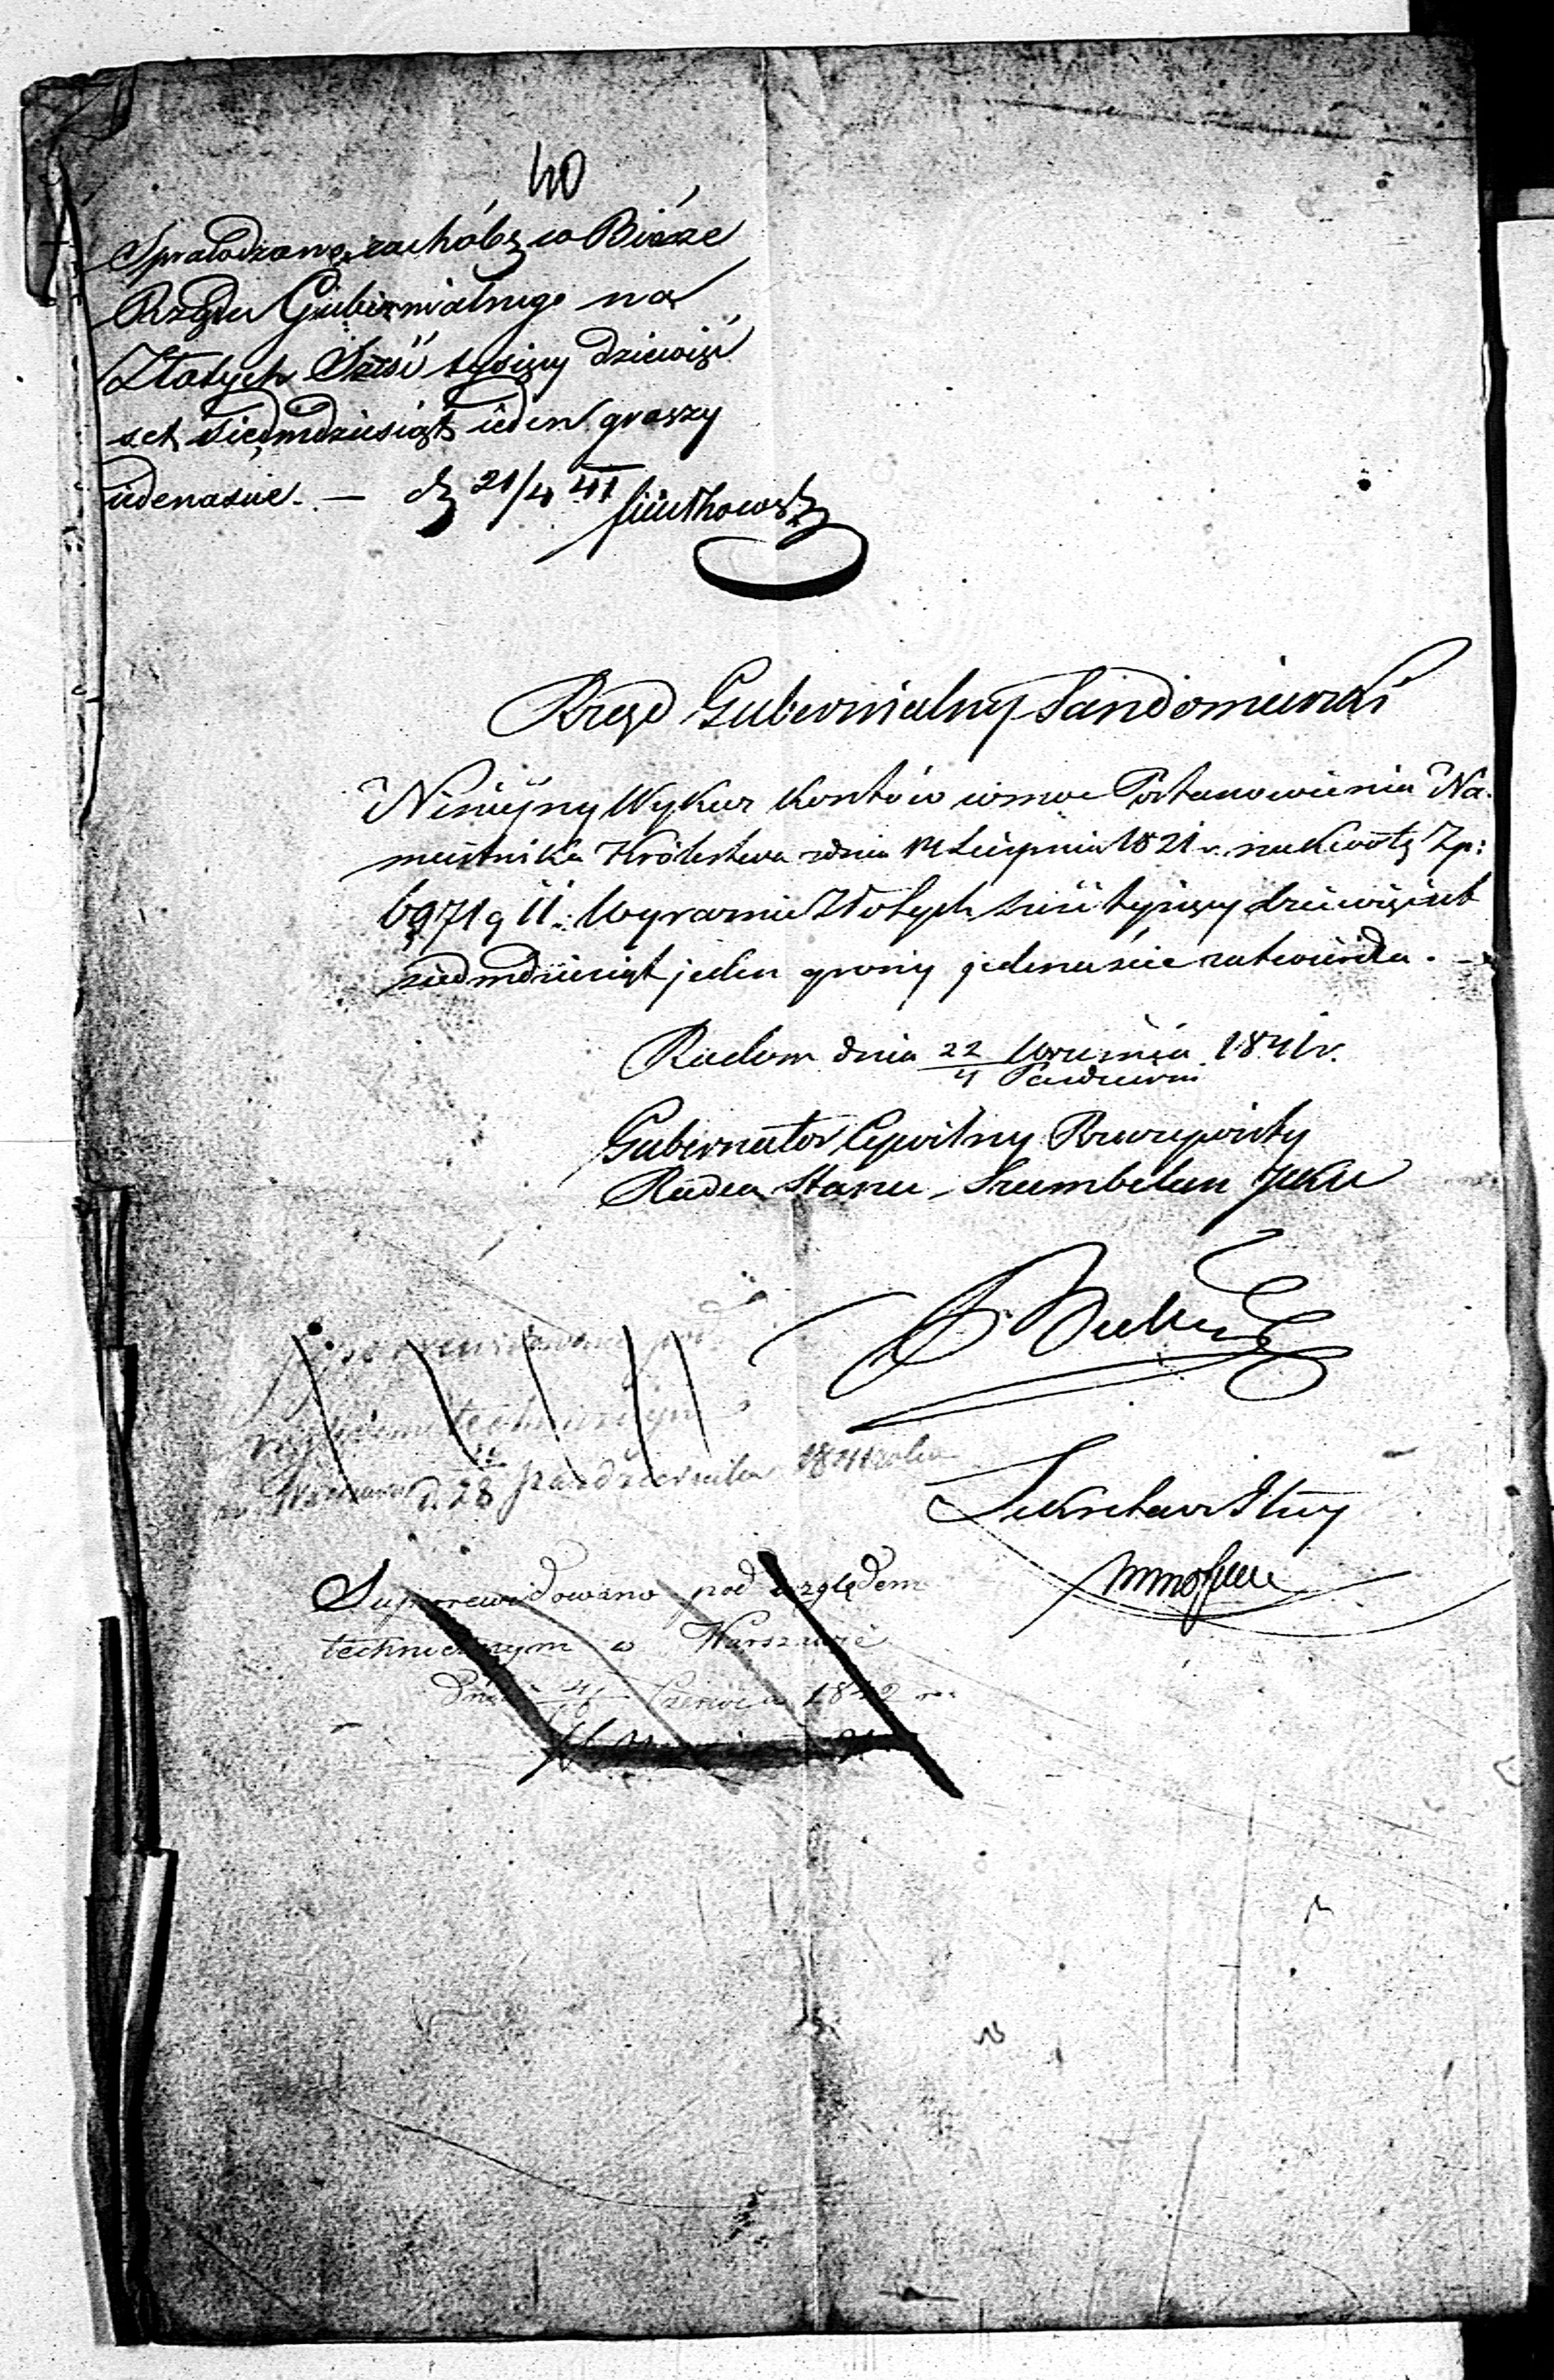 40
Sprawdzono rachubę w Biórze
Rządu Gubernialnego na
Złotych Sześć tysięcy dziewięć
set siedmdziesiąt ieden groszy
iedenaście. — d 21/4 41
Rząd Gubernialny Sandomierski
Niniejszy Wykaz Kosztów w moc Postanowienia Na-
miestnika Królestwa z dnia 14 Sierpnia 1821 r. na kwotę Zp:
6971 g 11.: Wyraźnie Złotych sześć tysięcy dziewięćset
siedmdziesiąt jeden groszy jedenaście zatwierdza. —
Radom dnia 22 Września 1841 r.
4 Październi
Gubernator Cywilny Rzeczywisty
Radca Stanu, Szambelan JCKM
pod
względem technicznym
w Warszawie d. 28 października 1841 roku
Sekretarz Jlny
Superrewidowano pod względem
technicznym w Warszawie
dnia 4/16 Czerwca 1842 r.